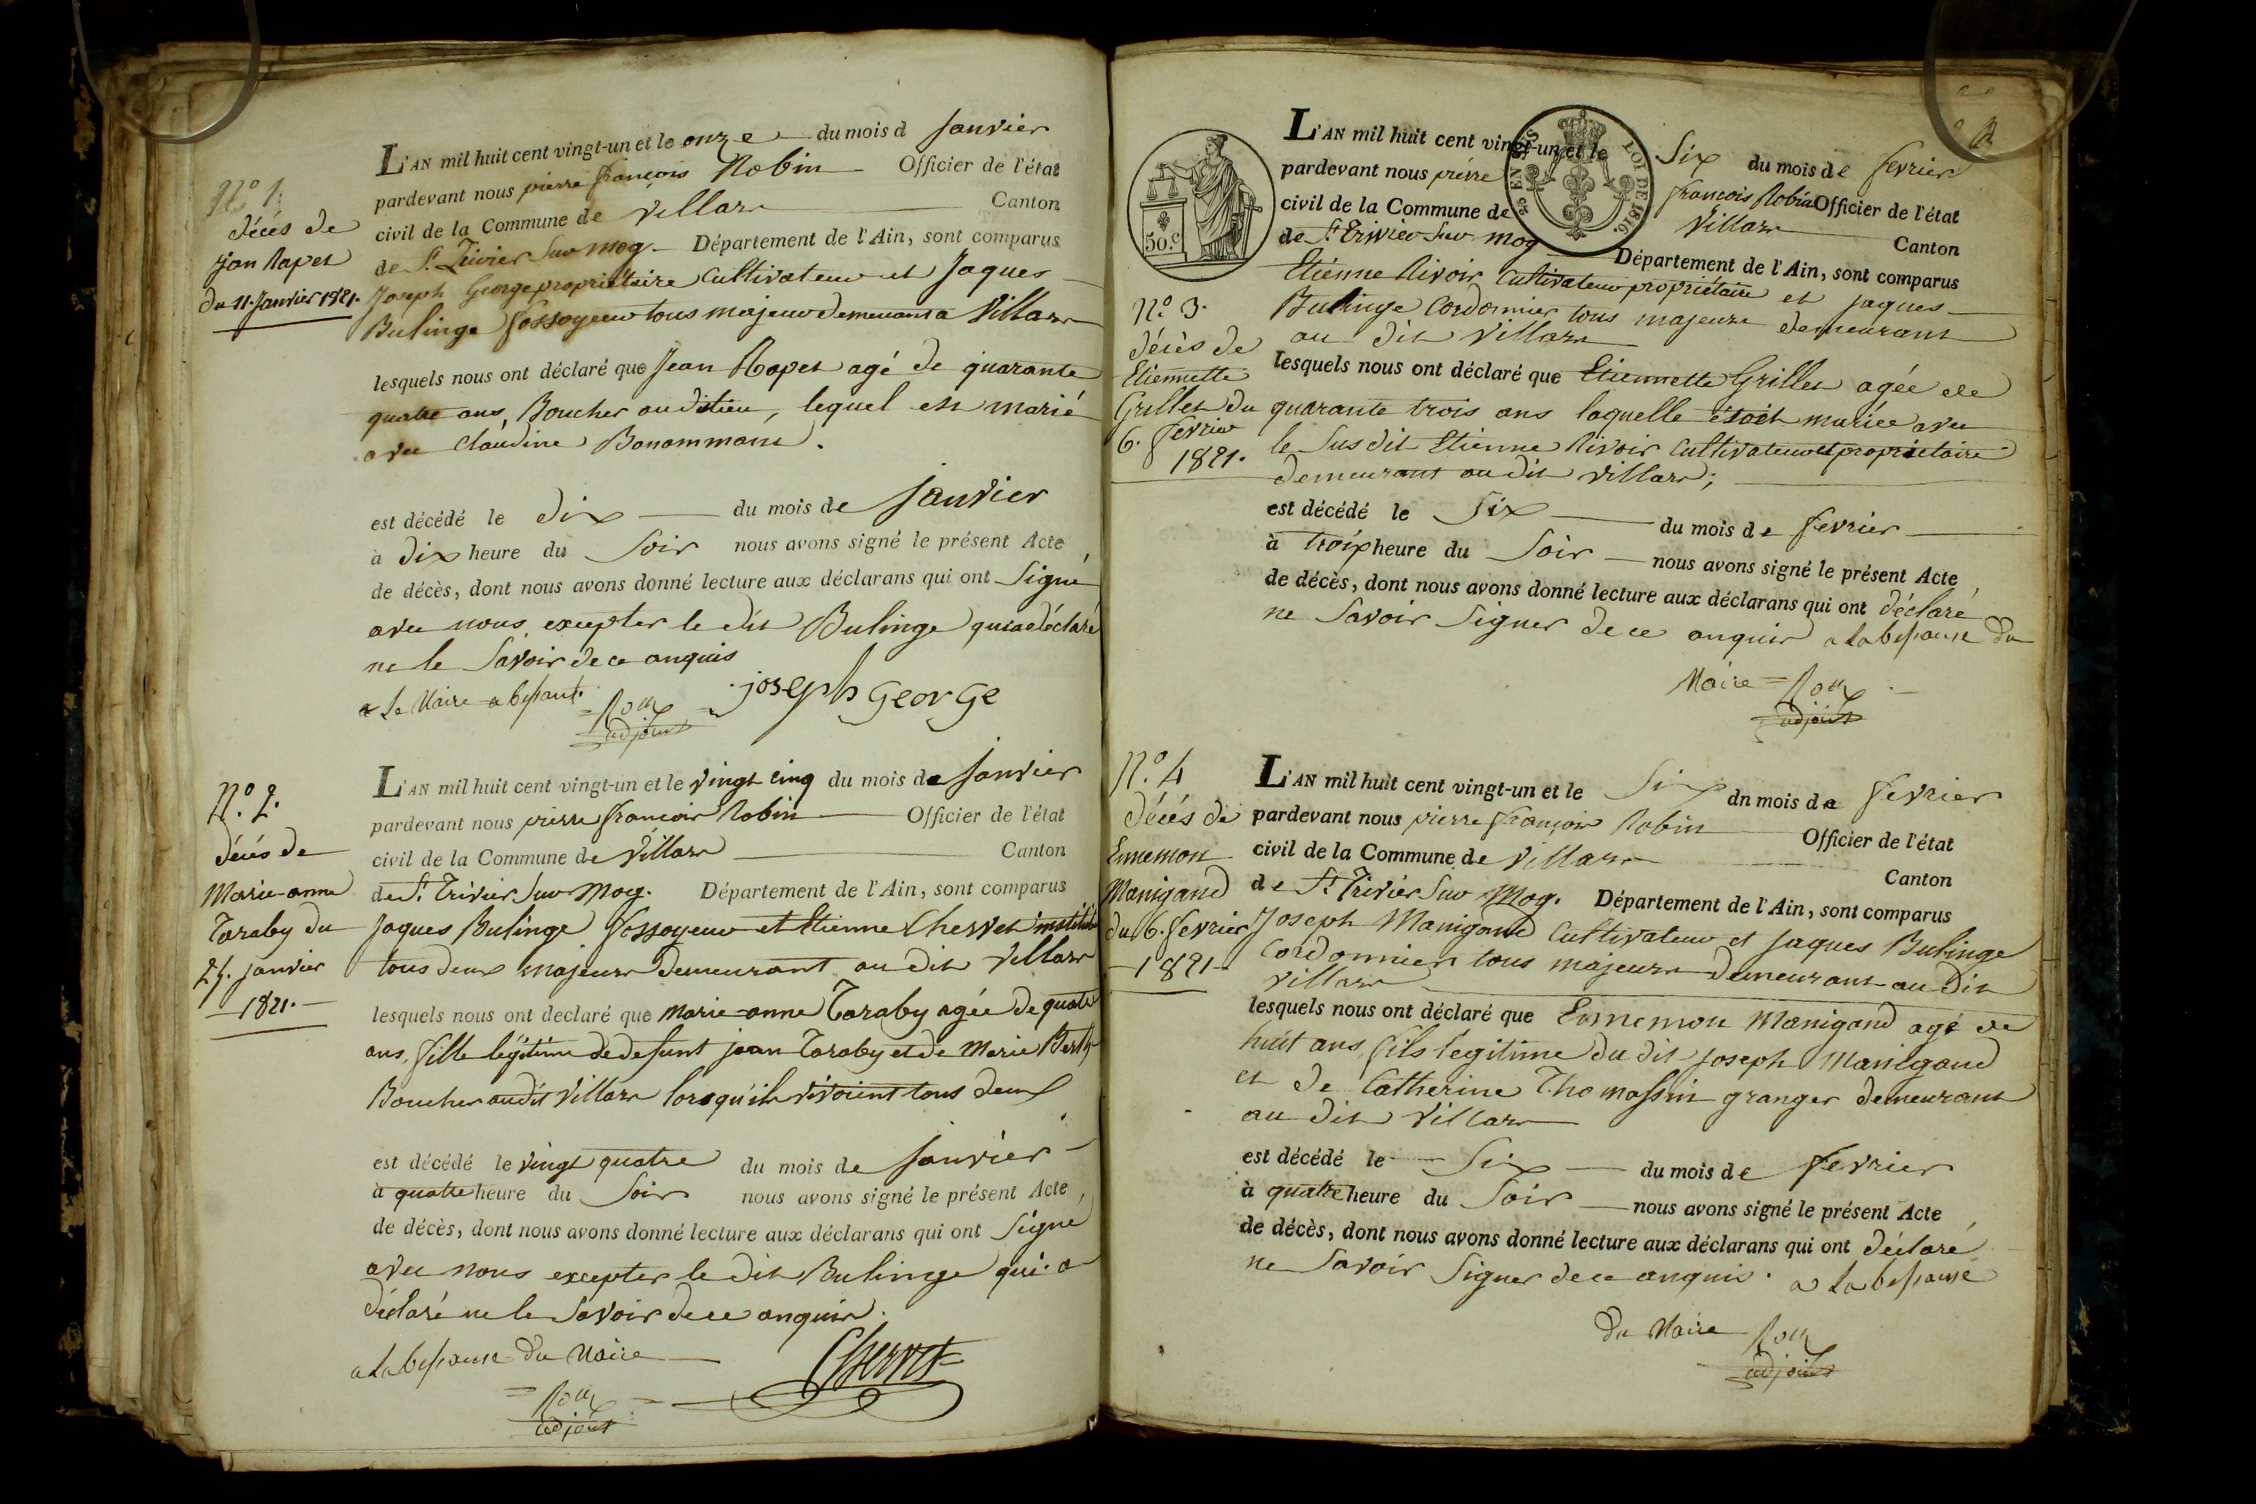 N.º 1.
décés de
jan Rapet
du 11. Janvier 1821.
L'AN mil huit cent vingt-un et le onze du mois d Janvier
pardevant nous pierre françois Robin Officier de l'état
civil de la Commune de Villars Canton
de St. Trivier Sur Mog. Département de l'Ain, sont comparus
Joseph George propriétaire Cultivateur et Jaques
Bulinge fossoyeur tous majeur demeurant a Villars
lesquels nous ont déclaré que Jean Rapet agé de quarante
quatre ans, Boucher audit lieu, lequel est marié
avec Claudine Bonammant.
est décédé le dix du mois de Janvier
à dix heure du Soir nous avons signé le présent Acte
de décès, dont nous avons donné lecture aux déclarans qui ont Signé
avec nous excepter le dit Bulinge qui a déclaré
ne le Savoir de ce anquis
joseph George
adjoint
N.º 2.
décés de
Marie-anne
Taraby du
25. janvier
1821.
L'AN mil huit cent vingt-un et le vingt cinq du mois de Janvier
pardevant nous pierre françois Robin Officier de l'état
civil de la Commune de Villars Canton
de St. Trivier Sur Mog. Département de l'Ain, sont comparus
Jaques Bulinge fossoyeur et Etienne Chervet
tous deux majeurs demeurant au dit Villars
lesquels nous ont declaré que Marie-anne Taraby agée de quatre
ans, fille légitime de defunt jean Taraby et de Marie
Boucher audit Villars lorsqu'ils vivoient tous deux
est décédé le vingt quatre du mois de Janvier
à quatre heure du Soir nous avons signé le présent Acte,
de décès, dont nous avons donné lecture aux déclarans qui ont Signé
avec nous excepter le dit Bulinge qui a
déclaré ne le Savoir de ce anquis.
du Maire
Chervet
adjoint
2
50.C
25 EN SUS
LOI DE 1816
N.º 3.
décès de
Etiennette
Grillet du
6. fevrier
1821.
L'AN mil huit cent vingt-un et le Six du mois de fevrier
pardevant nous pierre françois Robin Officier de l'état
civil de la Commune de Villars Canton
de St. Trivier Sur Mog Département de l'Ain, sont comparus
Etienne Rivoir Cultivateur propriétaire et jaques
Bulinge Cordonnier tous majeurs demeurant
au dit Villars
lesquels nous ont déclaré que Etiennette Grillet agée de
quarante trois ans laquelle étoit mariée avec
le Susdit Etienne Rivoir Cultivateur et propriétaire
demeurant audit Villars;
est décédé le Six du mois de fevrier
à trois heure du Soir nous avons signé le présent Acte
de décès, dont nous avons donné lecture aux déclarans qui ont déclaré
ne Savoir Signer de ce anquis du
Maire
adjoint
N.º 4
décés de
Ennemon
Manigand
du 6. fevrier
1821
L'AN mil huit cent vingt-un et le Six dn mois de fevrier
pardevant nous pierre françois Robin Officier de l'état
civil de la Commune de Villars Canton
de St. Trivier Sur Mog. Département de l'Ain, sont comparus
Joseph Manigand Cultivateur et Jaques Bulinge
Cordonnier tous majeurs demeurant au dit
Villars
lesquels nous ont déclaré que Ennemon Manigand agé de
huit ans, fils legitime du dit joseph Manigand
et de Catherine Thomassin granger demeurant
au dit Villars
est décédé le Six du mois de fevrier
à quatre heure du Soir nous avons signé le présent Acte
de décès, dont nous avons donné lecture aux déclarans qui ont déclaré
ne Savoir Signer de ce anquis.
du Maire
adjoint